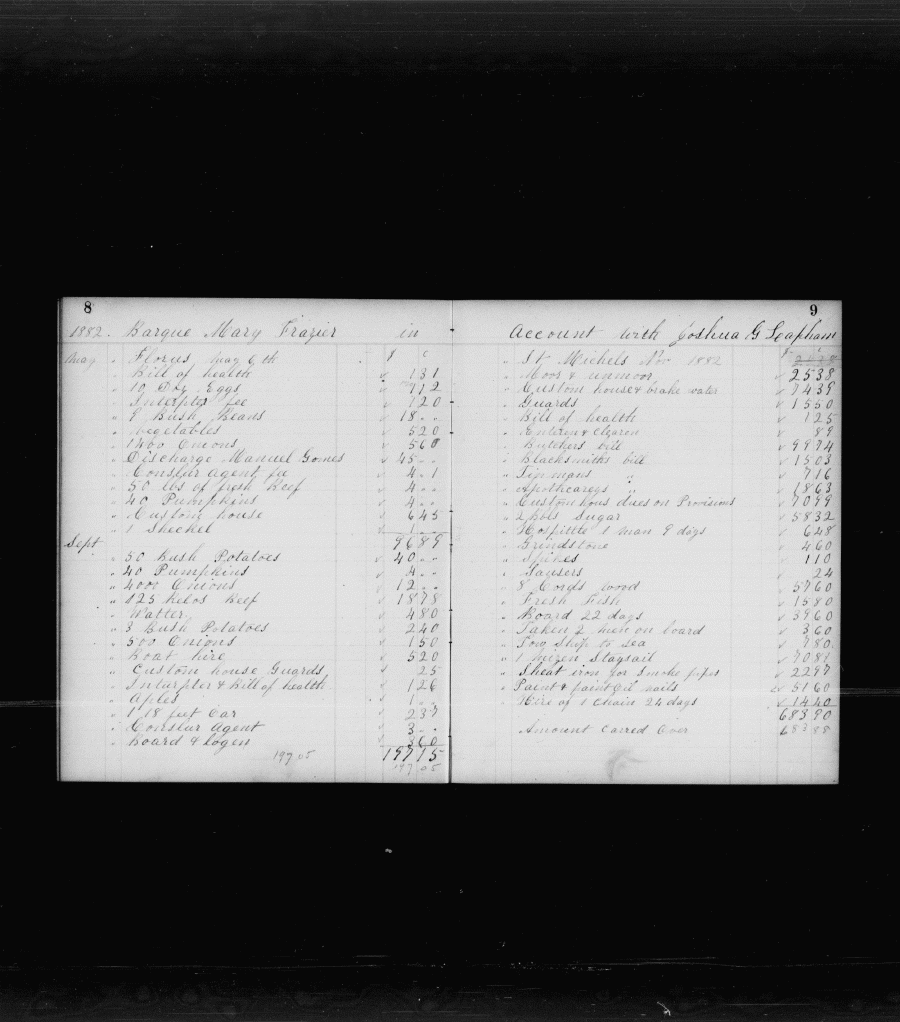 8
1882. Barque Mary Frazier in
$ c
May " Flores May 6th
" Bill of health 131
" 10 Doz Eggs 212
" Interpter fee 120
" 8 Bush Beans 18 - -
" Vegetables 520
" 1400 Onions 560
" Discharge Manuel Gomes 45 - -
" Conslur agent fee 4 - 1
" 50 lbs of fresh Beef 4 - -
" 40 Pumpkins 4 - -
" Custom house 645
" 1 Sheckel 1 - -
Sept 9689
" 50 Bush Potatoes 40 - -
" 40 Pumpkins 4 - -
" 4000 Onions 12 - -
" 125 Kelos Beef 1878
" Watter 480
" 3 Bush Potatoes 240
" 500 Onions 150
" Boat hire 520
" Custom house Guards 25
" Interpter & Bill of health 126
" Aples 1 - -
" 1 18 feet Oar 237
" Conslur Agent 3 - -
" Board & logen 360
197 05 19715
197 05
9
Account with Joshua G Leapham
$ c
" St Michels Nov 1882
" Moor & unmoor 2538
" Custom house & brake water 7439
" Guards 1550
" Bill of health 125
" Enterin & clearin 89
" Butchers bill 9974
" Blacksmiths bill 1503
" Tinmans " 716
" Apothcareys " 1863
" Custom hous dues on Provisions 7099
" 2 bbls Sugar 5832
" Hospittle 1 man 9 days 648
" Grindstone 460
" Spikes 110
" Sausers 24
" 8 Cords wood 5760
" Fresh Fish 1580
" Board 22 days 3960
" Taken 2 men on board 360
" Tow Ship to sea 780
" 1 mizen Staysail 7088
" Sheat iron for smoke pipes 2297
" Paint & paint Oil nails 5160
" Hire of 1 chain 24 days 1440
68390
Amount Carred Over 68388